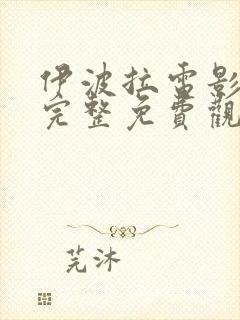 伊波拉雷影
完整免費觀
芫沐